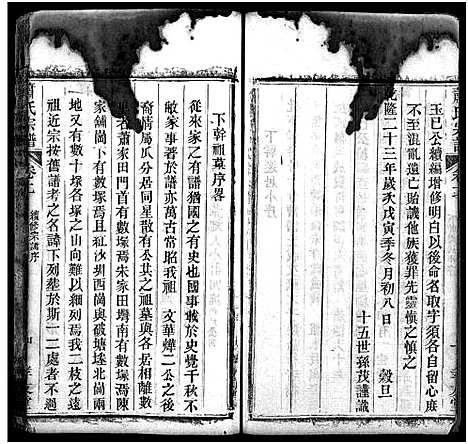 玉已公續編增修明白以後命名取字須各自留心庶
不至混亂遺亡貽譏他族獲罪先靈慎之慎之
隆二十三年歲次戊寅季冬月初八日 穀旦
十五世孫茂謹識
下幹祖墓序畧
從來家之有譜猶國之有史也國事載於史覺千秋不
敝家事著於譜亦萬古常昭我祖 文華燁二公之後
裔情属瓜分居同星散有公共之祖墓與各居相離數
里名蕭家田門首有數塚焉朱家田壋南有數塚焉陳
家舖崗下有數塚焉且紅沙圳西崗與破塘垅北崗兩
地又有數十塚各塚之山向難以細列焉我二枝之遠
祖近宗按舊譜考之名諱下列葬於斯一二處者不
蕭氏宗譜 卷之二 續修宗譜序